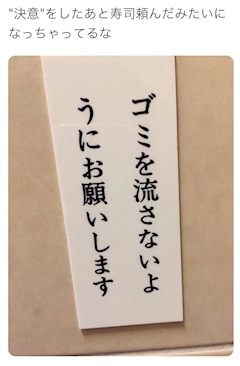 "決意"をしたあと寿司頼んだみたいに
なっちゃってるな
ゴミを流さないよ
うにお願いします